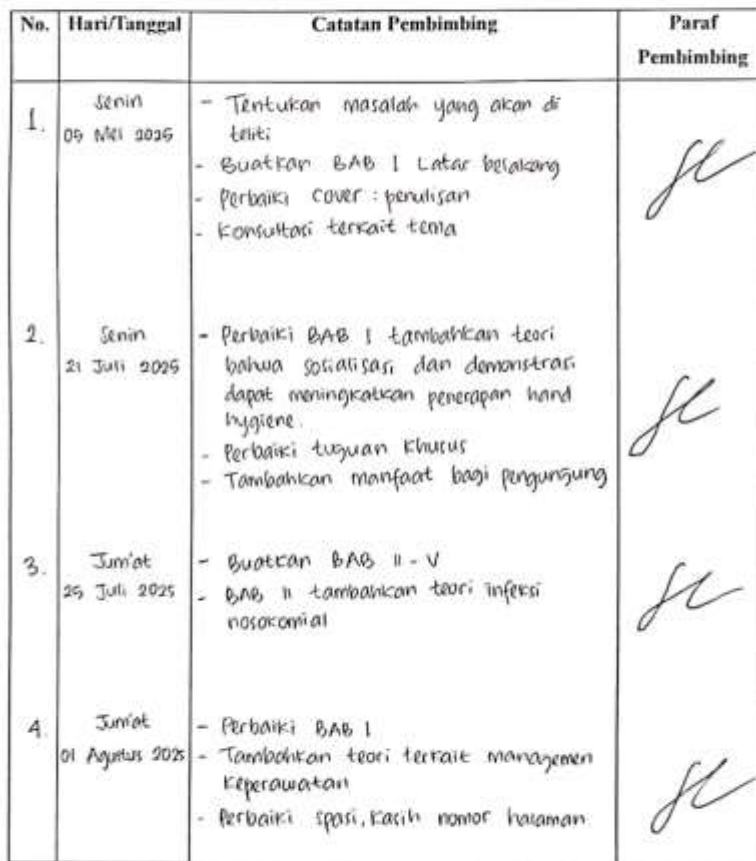 No. Hari/Tanggal Catatan Pembimbing Paraf
Pembimbing
1. Senin - Tentukan masalah yang akan di
05 Mei 2025 teliti
- Buatkan BAB I Latar belakang
- Perbaiki cover : penulisan
- Konsultasi terkait tema
2. Senin - Perbaiki BAB I tambahkan teori
21 Juli 2025 bahwa sosialisasi dan demonstrasi
dapat meningkatkan penerapan hand
hygiene.
- Perbaiki tujuan khusus
- Tambahkan manfaat bagi pengunjung
3. Jum'at - Buatkan BAB II - V
25 Juli 2025 - BAB II tambahkan teori infeksi
nosokomial
4. Jum'at - Perbaiki BAB I
01 Agustus 2025 - Tambahkan teori terkait managemen
keperawatan
- Perbaiki spasi, kasih nomor halaman